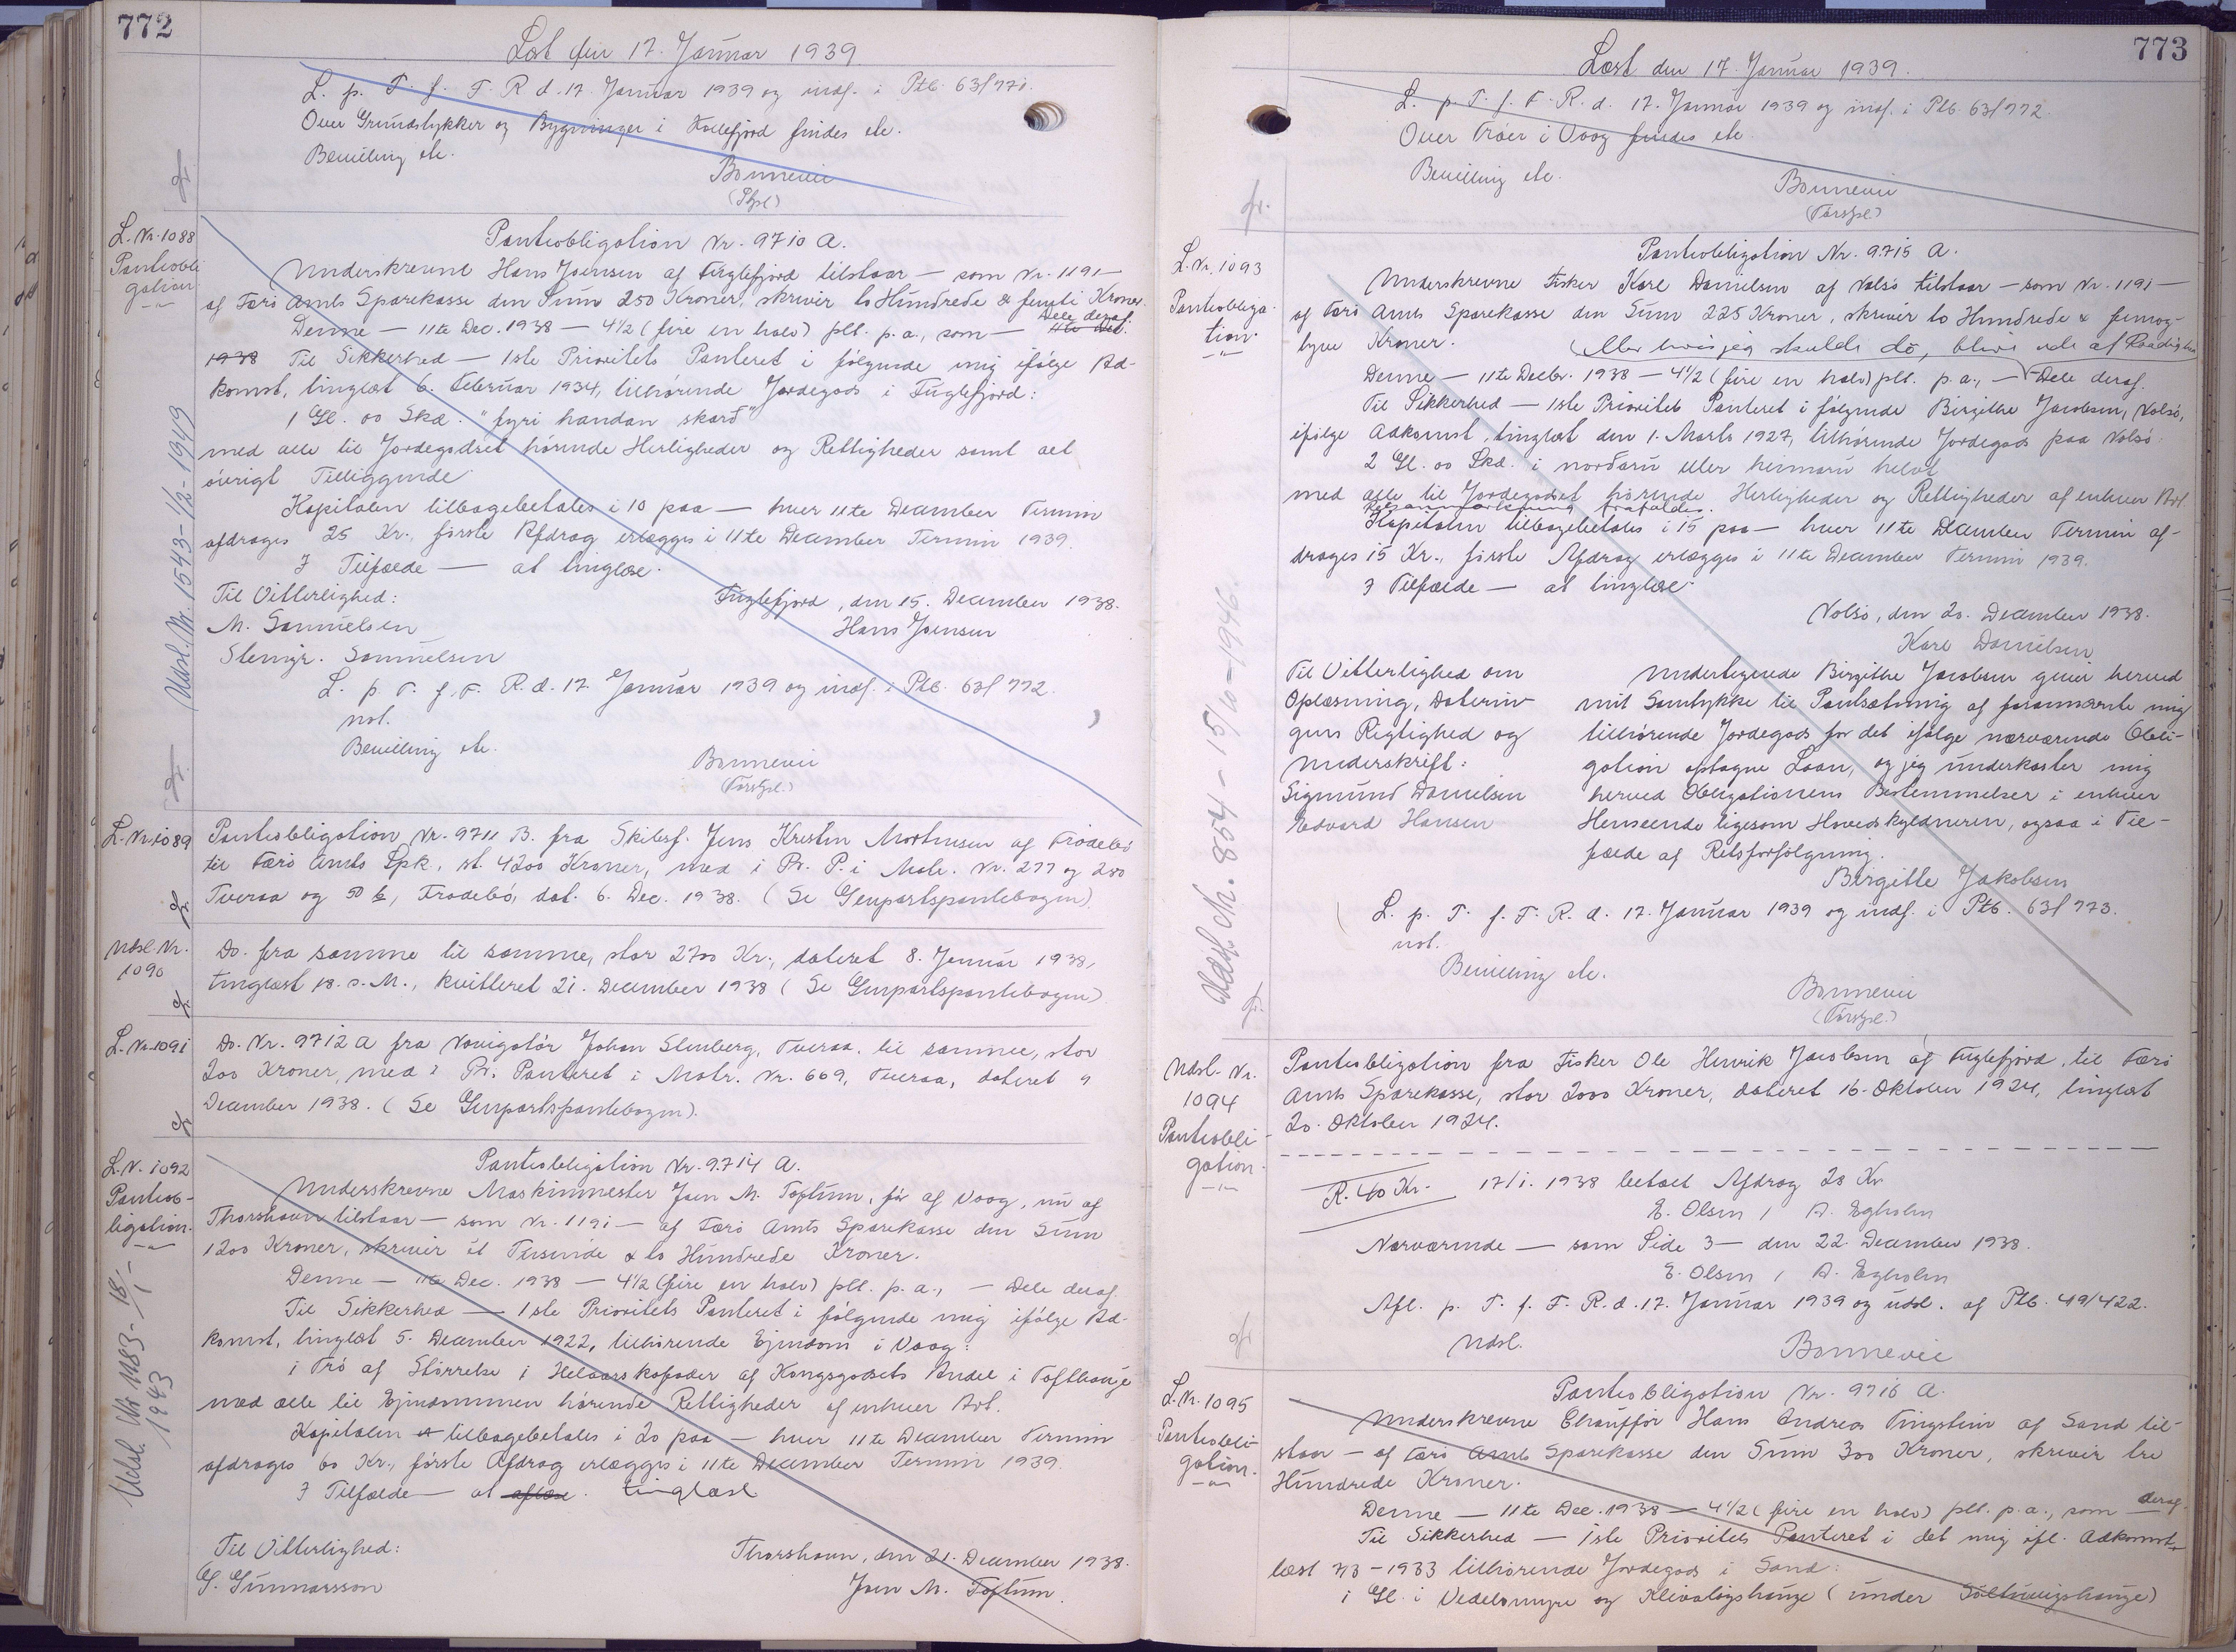 772
Læst den 17. Januar 1939
L. p. T. f. F. R d. 17. Januar 1939 og indf. i Ptb. 63f 771.
Over Grundstykker og Bygninger i Kollefjord findes etc.
Bevilling etc.
Bonnevie
L. Nr. 1088
Pantobli
gation
Pantobligation Nr. 9710 A.
Underskrevne Hans Joensen af Fuglefjord tilstaar — som Nr. 1191 —
af Færø Amts Sparekasse den Sum 250 Kroner, skriver to Hundrede & femti Kroner.
Denne — 11te Dec. 1938 — 4½ (fire en halv) pCt. p. a., som — Dele deraf.
1938 Til Sikkerhed — 1ste Prioritets Panteret i følgende mig ifølge Ad-
komst, tinglæst 6. Februar 1934, tilhørende Jordegods i Fuglefjord:
1 Gl. 00 Skd. "fyri handan skarð"
med alle til Jordegodset hørende Herligheder og Rettigheder samt alt
øvrigt Tilliggende
Kapitalen tilbagebetales i 10 paa — hver 11te December Termin
afdrages 25 Kr., første Afdrag erlægges i 11te December Termin 1939.
I Tilfælde — at tinglæse.
Til Vitterlighed:
Fuglefjord, den 15. December 1938.
M. Samuelsen
Hans Joensen
Stengr. Samuelsen
L. p. T. f. F. R. d. 17. Januar 1939 og indf. i Ptb. 63f 772.
not.
Bevilling etc.
Bonnevie
(Førstgl.)
Udsl. Nr. 1543 - 1/2 - 1949
L. Nr. 1089
Pantobligation Nr. 9711 B. fra Skibsf. Jens Kristen Mortensen af Frodebø
til Færø Amts Spk., st. 4200 Kroner, med 1 Pr. P. i Matr. Nr. 277 og 280
Tveraa og 50 b, Frodebø, dat. 6. Dec. 1938. (Se Genpartspantebogen).
Udsl. Nr.
1090
Do. fra samme til samme, stor 2700 Kr., dateret 8. Januar 1938,
tinglæst 18. s. M., kvitteret 21. December 1938 (Se Genpartspantebogen)
L. Nr. 1091
Do. Nr. 9712 A fra Navigatør Johan Stenberg, Tveraa, til samme, stor
200 Kroner, med 2 Pr. Panteret i Matr. Nr. 669, Tveraa, dateret 9
December 1938. (Se Genpartspantebogen).
L. N. 1092
Pantob-
ligation.
Pantobligation Nr. 9714 A.
Underskrevne Maskinmester Joen M. Toftum, før af Voog, nu af
Thorshavn tilstaar — som Nr. 1191 — af Færø Amts Sparekasse den Sum
1200 Kroner, skriver et Tusinde & to Hundrede Kroner.
Denne — 11te Dec. 1938 — 4½ (fire en halv) pCt. p. a., — Dele deraf.
Til Sikkerhed — 1ste Prioritets Panteret i følgende mig ifølge Ad-
komst, tinglæst 5. December 1922, tilhørende Ejendom i Voog:
1 Trø af Størrelse 1 Helaarskofoder af Kongsgodsets Andel i Tofthauge
med alle til Ejendommen hørende Rettigheder af enhver Art.
Kapitalen tilbagebetales i 20 paa — hver 11te December Termin
afdrages 60 Kr., første Afdrag erlægges i 11te December Termin 1939.
I Tilfælde — at aflæse. tinglæse
Til Vitterlighed:
Thorshavn, den 21. December 1938.
G. Gunnarsson
Joen M. Toftum.
Udsl. Nr 1183 - 18/1 - 1943
773
Læst den 17. Januar 1939.
L. p. T. f. F. R. d. 17. Januar 1939 og indf. i Ptb. 63f 772.
Over Trøer i Voog findes etc.
Bevilling etc.
Bonnevie
(Førstgl.)
L. Nr. 1093
Pantobliga-
tion
Pantobligation Nr. 9715 A.
Underskrevne Fisker Karl Danielsen af Nolsø tilstaar — som Nr. 1191 —
af Færø Amts Sparekasse den Sum 225 Kroner, skriver to Hundrede & femog-
tyve Kroner.
(eller hvis jeg skulde dø, blive ude af Raadighed
Denne — 11te Decbr. 1938 — 4½ (fire en halv) pCt. p. a., — Dele deraf.
Til Sikkerhed — 1ste Prioritets Panteret i følgende Birgithe Jacobsen, Nolsø,
ifølge Adkomst, tinglæst den 1. Marts 1927, tilhørende Jordegods paa Nolsø:
2 Gl. 00 Skd. i norðaru eller heimaru helvt
med alle til Jordegodset hørende Herligheder og Rettigheder af enhver Art.
Kapitalen tilbagebetales i 15 paa — hver 11te December Termin af-
drages 15 Kr., første Afdrag erlægges i 11te December Termin 1939.
I Tilfælde — at tinglæse.
Nolsø, den 20. December 1938.
Karl Danielsen
Til Vitterlighed om
Oplæsning, Daterin-
gens Rigtighed og
Underskrift:
Sigmund Danielsen
Edvard Hansen
Undertegnede Birgithe Jacobsen giver herved
mit Samtykke til Pantsætning af forannævnte mig
tilhørende Jordegods for det ifølge nærværende Obli-
gation optagne Laan, og jeg underkaster mig
herved Obligationens Bestemmelser i enhver
Henseende ligesom Hovedskyldneren, ogsaa i Til-
fælde af Retsforfølgning.
Birgitte Jakobsen
L. p. T. f. F. R. d. 17. Januar 1939 og indf. i Ptb. 63f 773.
not.
Bevilling etc.
Bonnevie
(Førstgl.)
Udsl. Nr. 854 - 15/10 - 1946
Udsl. Nr.
1094
Pantobli-
gation.
Pantobligation fra Fisker Ole Henrik Jacobsen af Fuglefjord, til Færø
Amts Sparekasse, stor 2000 Kroner, dateret 16. Oktober 1924, tinglæst
20. Oktober 1924.
R. 40 Kr.
17/1. 1938 betalt Afdrag 28 Kr
E. Olsen / A. Egholm
Nærværende — som Side 3 — den 22. December 1938.
E. Olsen / A. Egholm
Afl. p. T. f. F. R. d. 17. Januar 1939 og udsl. af Ptb. 49/422.
Udsl.
Bonnevie
L. N. 1095
Pantobli-
gation.
Pantobligation Nr. 9716 A.
Underskrevne Chauffør Hans Andreas Tingstein af Sand til-
staar — af Færø Amts Sparekasse den Sum 300 Kroner, skriver tre
Hundrede Kroner.
Denne — 11te Dec. 1938 — 4½ (fire en halv) pCt. p. a., som — deraf.
Til Sikkerhed — 1ste Prioritets Panteret i det mig ifl. Adkomst,
læst 7/3 - 1933 tilhørende Jordegods i Sand:
1 Gl. i Vedelsmyre og Klivaløgshauge (under Søltuvigshauge)